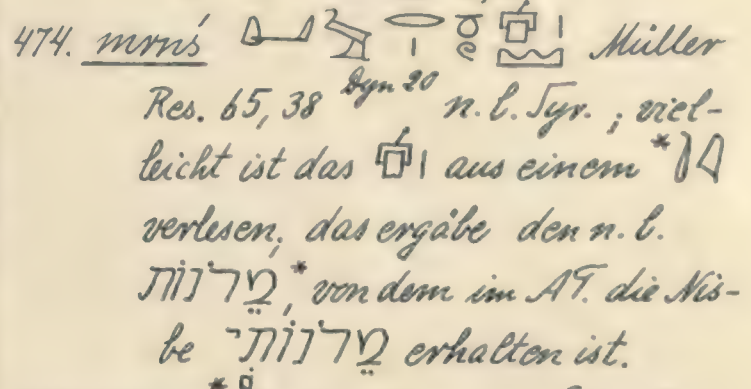 474. mrnś Müller
Res. 65, 38 Dyn 20 n. l. Syr. ; viel-
leicht ist das aus einem *
verlesen, das ergäbe den n. l.
מֵרֹנוֹת,* von dem im AT. die Nis-
be מֵרֹנוֹתִי erhalten ist.